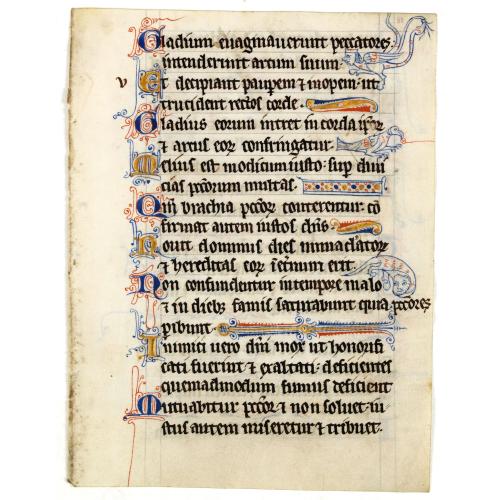 Gladium euaginauerunt peccatores
intenderunt arcum suum
v Et decipiant paupem ⁊ inopem ut
trucident rectos corde
Gladius eorum intret in corda ipoꝝ
⁊ arcus eoꝝ confringatur
Melius est modicum iusto sup diui
cias pctorum multas
Qm brachia pctoꝝ conterentur cō
firmat autem iustos dns
Nouit dominus dies inmaclatoꝝ
⁊ hereditas eoꝝ iēternum erit
Non confundentur in tempore malo
⁊ in dieb; famis saturabunt quia pctores
pibunt
Inimici uero dni mox ut honorifi
cati fuerint ⁊ exaltati deficientes
quemadmodum fumus deficient
Mutuabitur pctoꝝ ⁊ non soluet iu
stus autem miseretur ⁊ tribuet